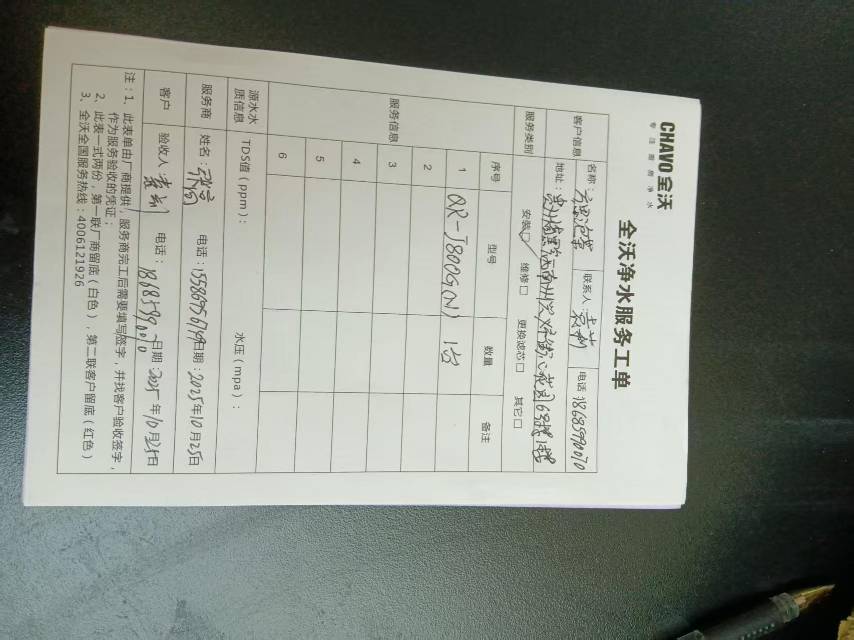 CHAVO全沃
专注厨房净水
全沃净水服务工单
客户信息 名称： 联系人 电话 18685990070
地址：
服务类别 安装□ 维修□ 更换滤芯□ 其它□
服务信息 序号 型号 数量 备注
1 QR-J800G(N) 1台
2
3
4
5
6
源水水质信息 TDS值（ppm）： 水压（mpa）：
服务商 姓名： 电话：15586956749 日期：2025年10月25日
客户 验收人： 电话： 18685990070 日期：2025年10月25日
注：1、此表单由厂商提供，服务商完工后需要填写签字，并找客户验收签字，
作为服务验收的凭证；
2、此表一式两份，第一联厂商留底（白色），第二联客户留底（红色）
3、全沃全国服务热线：4006121926